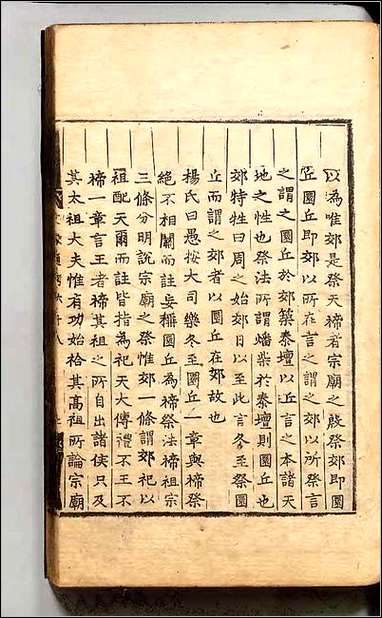 以為唯郊是祭天禘者宗廟之殷祭郊即圜
丘圜丘即郊以所在言之謂之郊以所祭言
之謂之圜丘於郊築泰壇以丘言之本諸天
地之性也祭法所謂燔柴於泰壇則圜丘也
郊特牲曰周之始郊日以至此言冬至祭圜
丘而謂之郊者以圜丘在郊故也
楊氏曰愚按大司樂冬至圜丘一章與禘祭
絕不相關而註妄稱圜丘為禘祭法禘祖宗
三條分明說宗廟之祭惟郊一條謂郊祀以
祖配天爾而註皆指為祀天大傳禮不王不
禘一章言王者禘其祖之所自出諸侯只及
其太祖大夫惟有功始祫其高祖所論宗廟